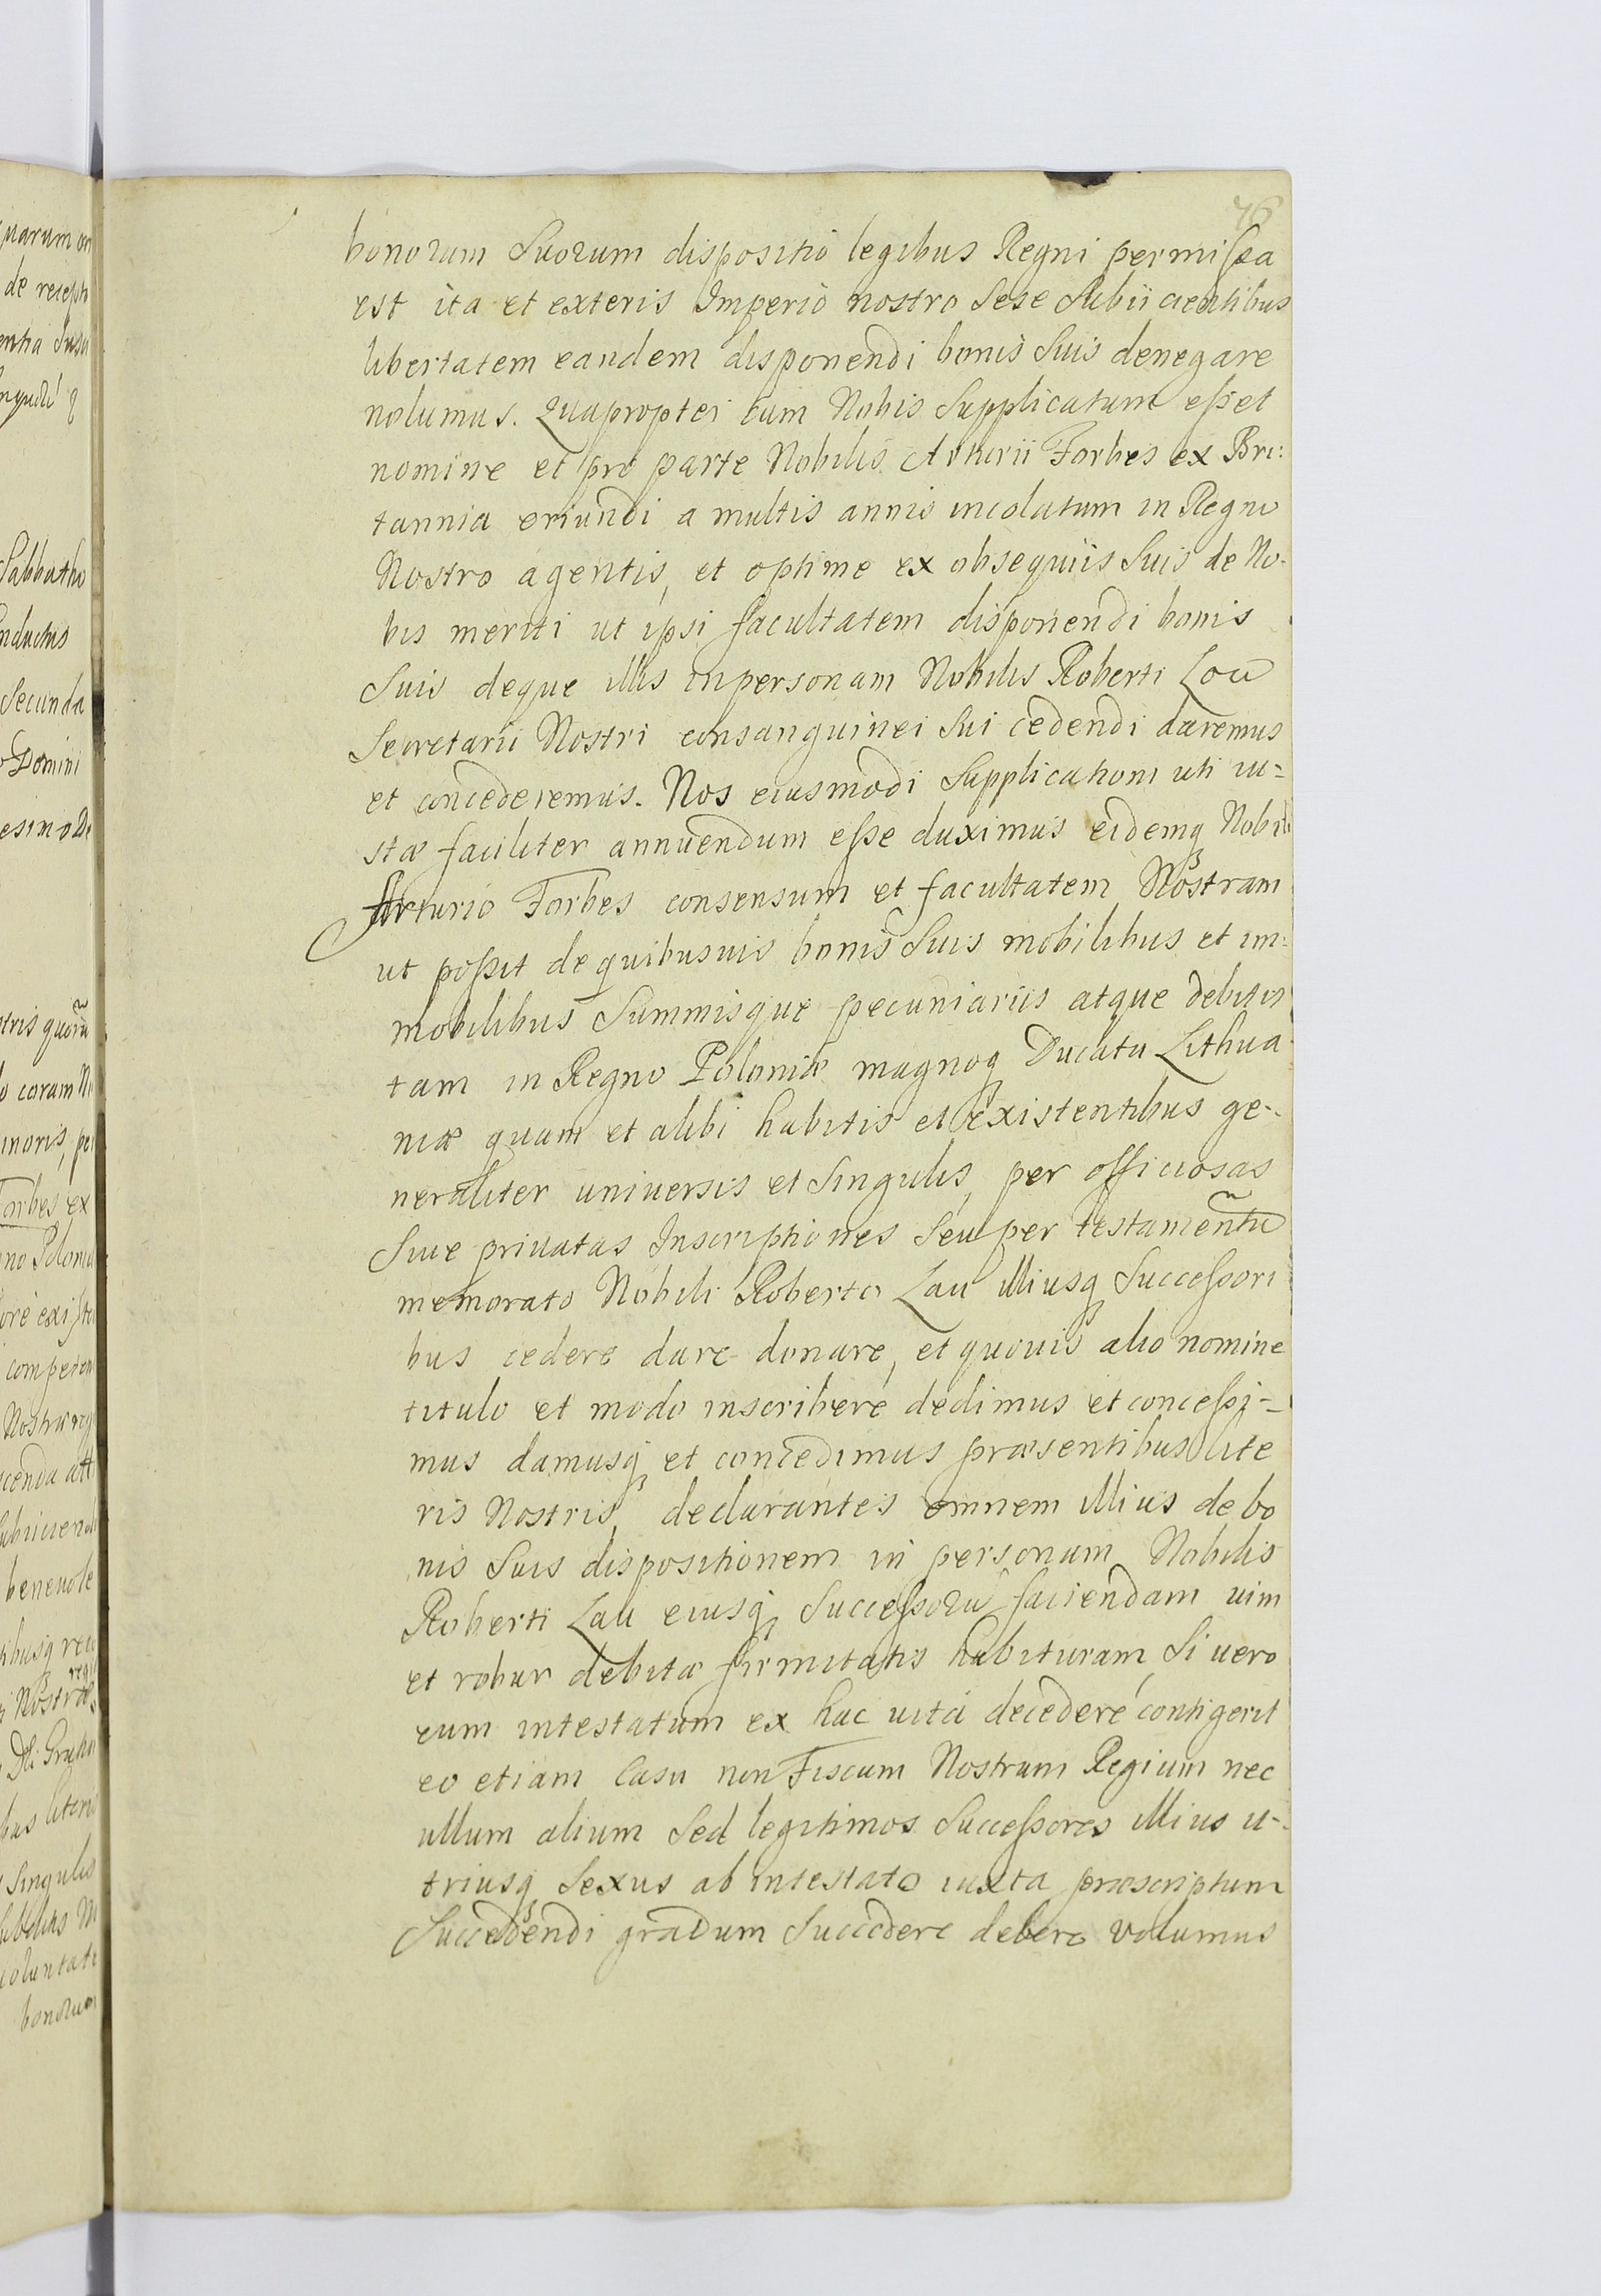 76
bonorum suorum dispositio legibus Regni permissa
est ita et exteris Imperio nostro sese subiicientibus
libertatem eandem disponendi bonis suis denegare
nolumus. Quapropter cum Nobis supplicatum esset
nomine et pro parte Nobilis Arturii Forbes ex Bri:
tannia oriundi a multis annis incolatum in Regno
Nostro agentis, et optime ex obsequiis suis de No-
bis meriti ut ipsi facultatem disponendi bonis
suis deque illis in personam Nobilis Roberti Lou
Secretarii Nostri consanguinei sui cedendi daremus
et concederemus. Nos eiusmodi supplicationi uti iu=
stæ faciliter annuendum esse duximus eidemq Nobili
Arturio Forbes consensum et facultatem Nostram
ut possit de quibusuis bonis suis mobilibus et im:
mobilibus summisque pecuniariis atque debitis
tam in Regno Poloniæ magnoq Ducatu Lithua-
niæ quam et alibi habitis et existentibus ge-
neraliter uniuersis et singulis, per officiosas
siue priuatas Inscriptiones seu per testamentũ
memorato Nobili Roberto Lau illiusq Successori
bus cedere dare donare, et quouis alio nomine
titulo et modo inscribere dedimus et concessi=
mus damusq et concedimus præsentibus lite
ris Nostris, declarantes omnem illius de bo
nis suis dispositionem in personam Nobilis
Roberti Lau eiusq Successorũ faciendam uim
et robur debitæ firmitatis habituram, Si uero
eum intestatum ex hac uita decedere contigerit
eo etiam Casu non Fiscum Nostrum Regium nec
ullum alium sed legitimos Successores illius u-
triusq sexus ab intestato iuxta præscriptum
succedendi gradum succedere debere volumus